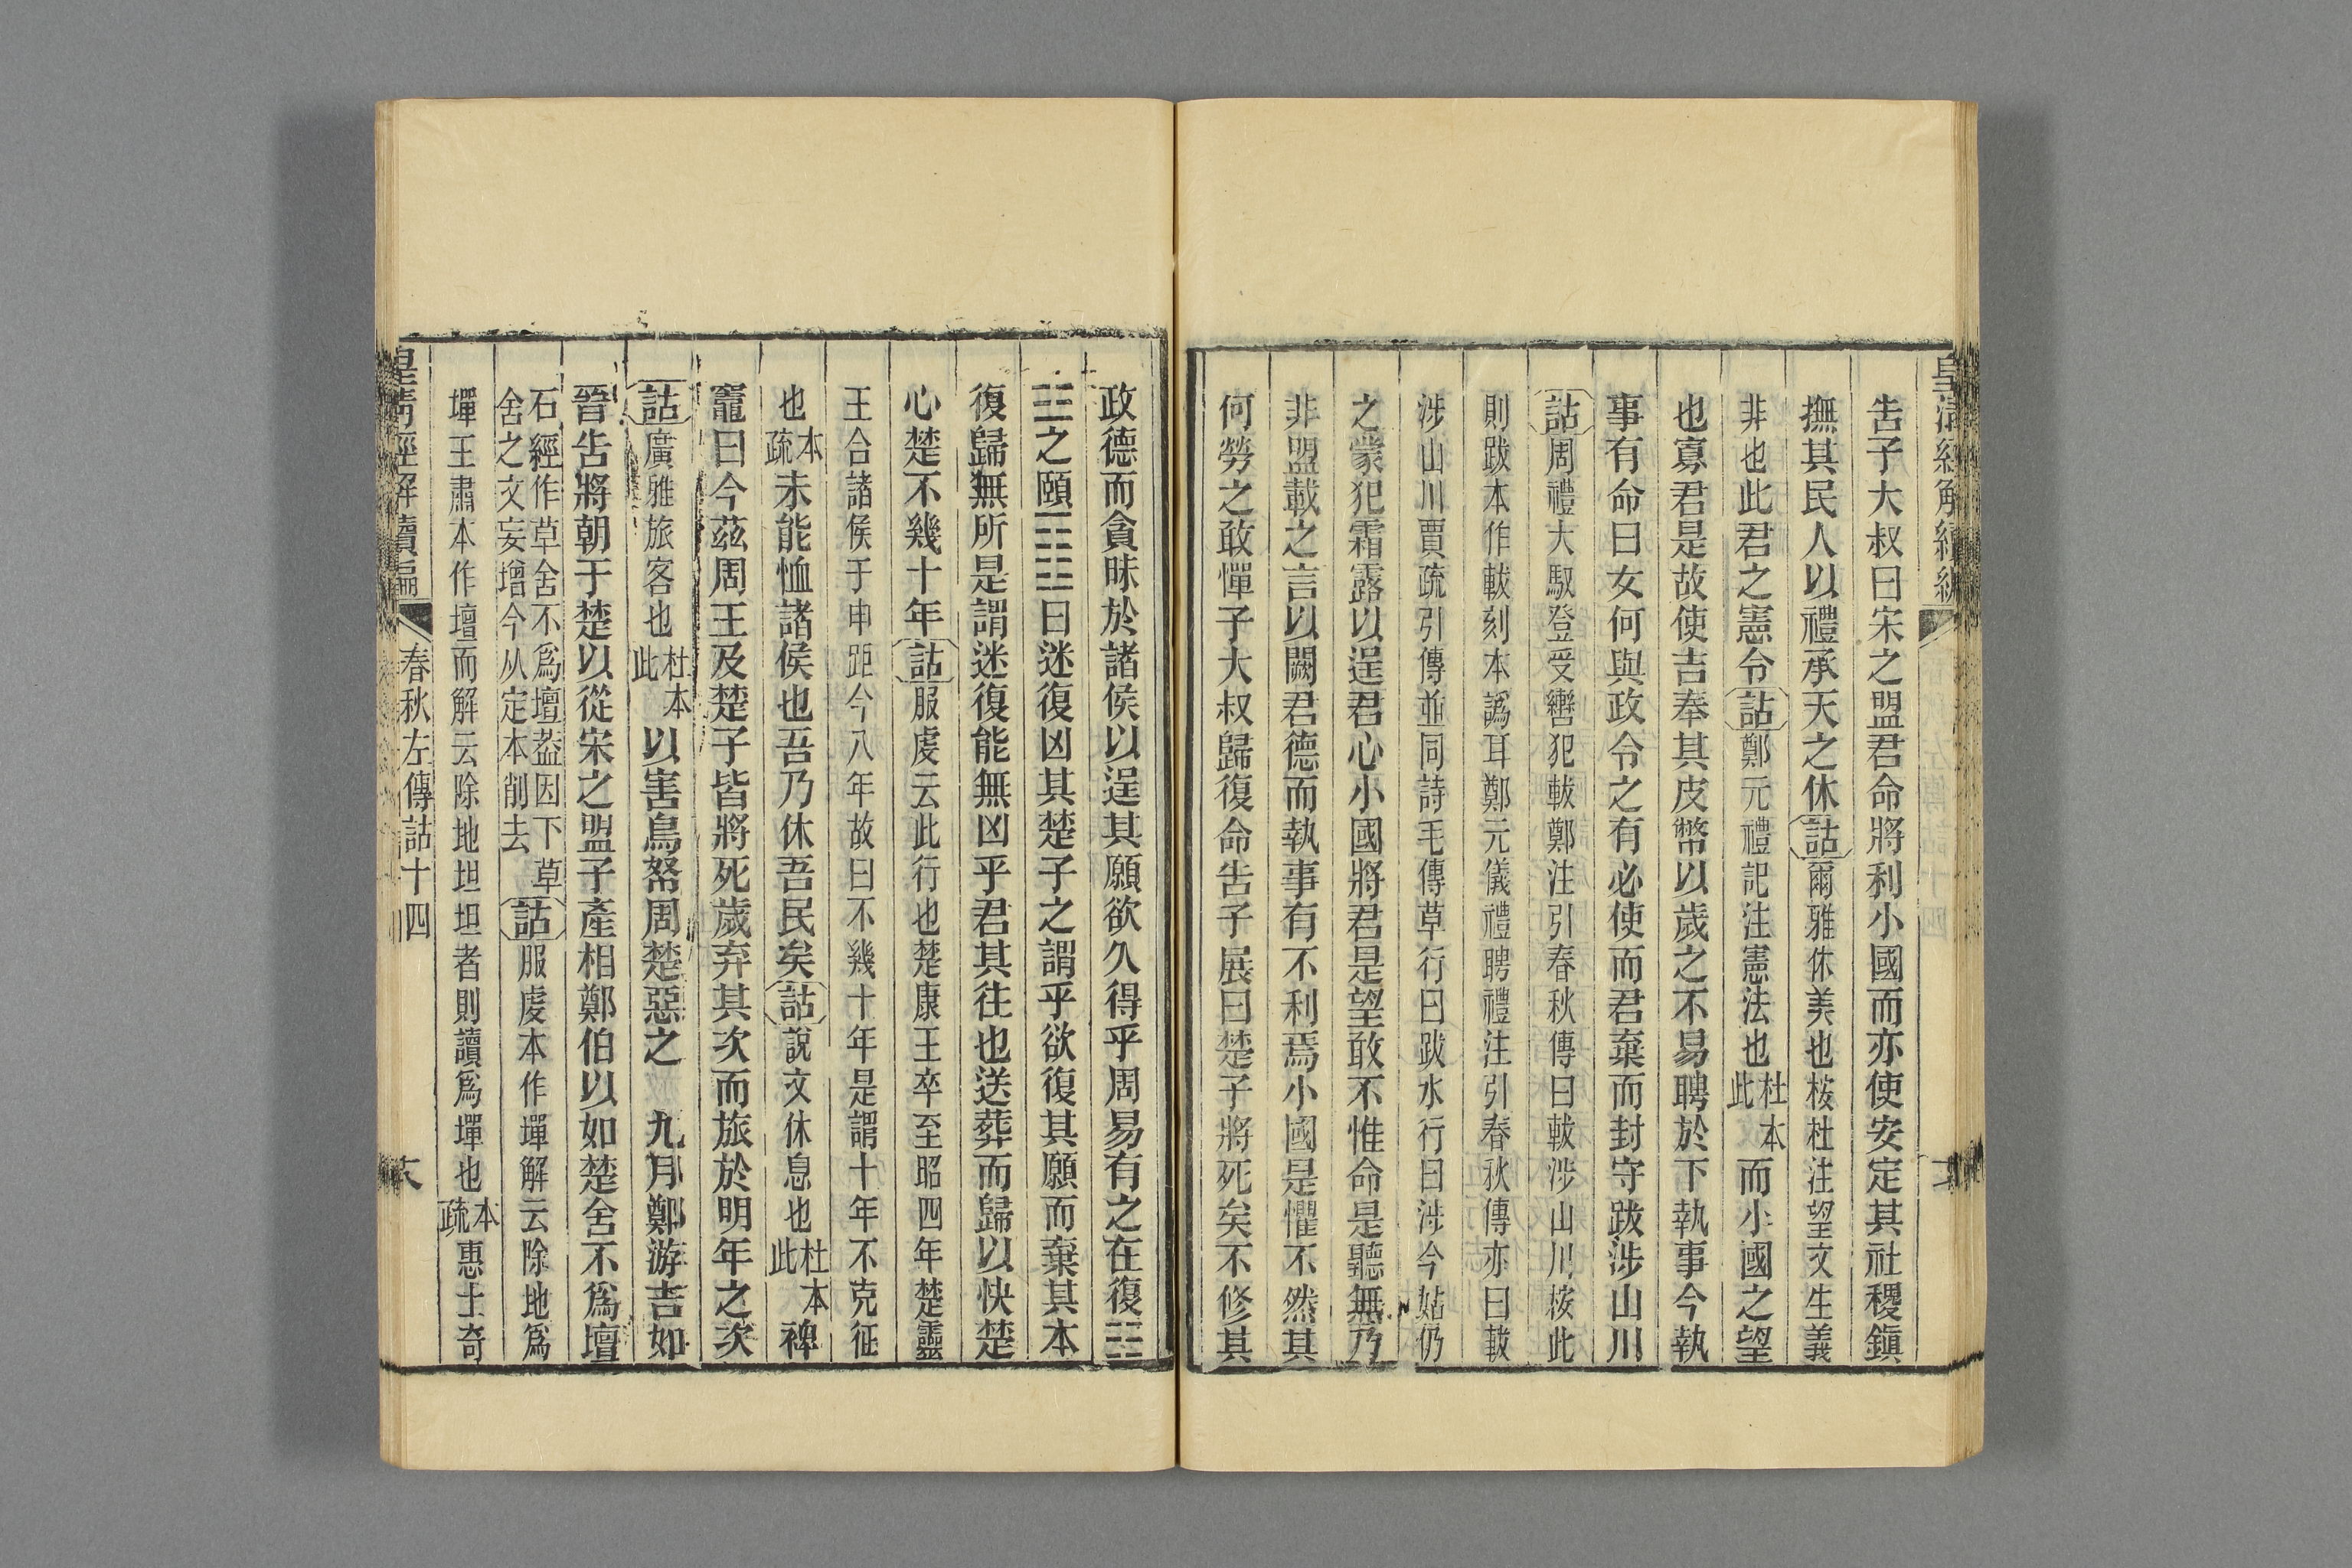 告子大叔曰宋之盟君命將利小國而亦使安定其社稷鎮
撫其民人以禮承天之休詁爾雅休美也桉杜注望文生義
非也此君之憲令詁鄭元禮記注憲法也杜本此而小國之望
也寡君是故使吉奉其皮幣以歲之不易聘於下執事今執
事有命曰女何與政令之有必使而君棄而封守跋涉山川
詁周禮大馭登受轡犯軷鄭注引春秋傳曰軷涉山川桉此
則跋本作軷刻本譌耳鄭元儀禮聘禮注引春秋傳亦曰軷
涉山川賈疏引傳並同詩毛傳草行曰跋水行曰涉今姑仍
之蒙犯霜露以逞君心小國將君是望敢不惟命是聽無乃
非盟載之言以闕君德而執事有不利焉小國是懼不然其
何勞之敢憚子大叔歸復命告子展曰楚子將死矣不修其
政德而貪昧於諸侯以逞其願欲久得乎周易有之在復䷗
之頤䷚曰迷復凶其楚子之謂乎欲復其願而棄其本
復歸無所是謂迷復能無凶乎君其往也送葬而歸以快楚
心楚不幾十年詁服虔云此行也楚康王卒至昭四年楚靈
王合諸侯于申距今八年故曰不幾十年是謂十年不克征
也本疏未能恤諸侯也吾乃休吾民矣詁說文休息也杜本此裨
竈曰今茲周王及楚子皆將死歲弃其次而旅於明年之次
詁廣雅旅客也杜本此以害鳥帑周楚惡之 九月鄭游吉如
晉告將朝于楚以從宋之盟子產相鄭伯以如楚舍不爲壇
石經作草舍不爲壇葢因下草舍之文妄增今从定本削去詁服虔本作墠解云除地爲
墠王肅本作壇而解云除地坦坦者則讀爲墠也本疏惠士奇
皇清經解續編 春秋左傳詁十四